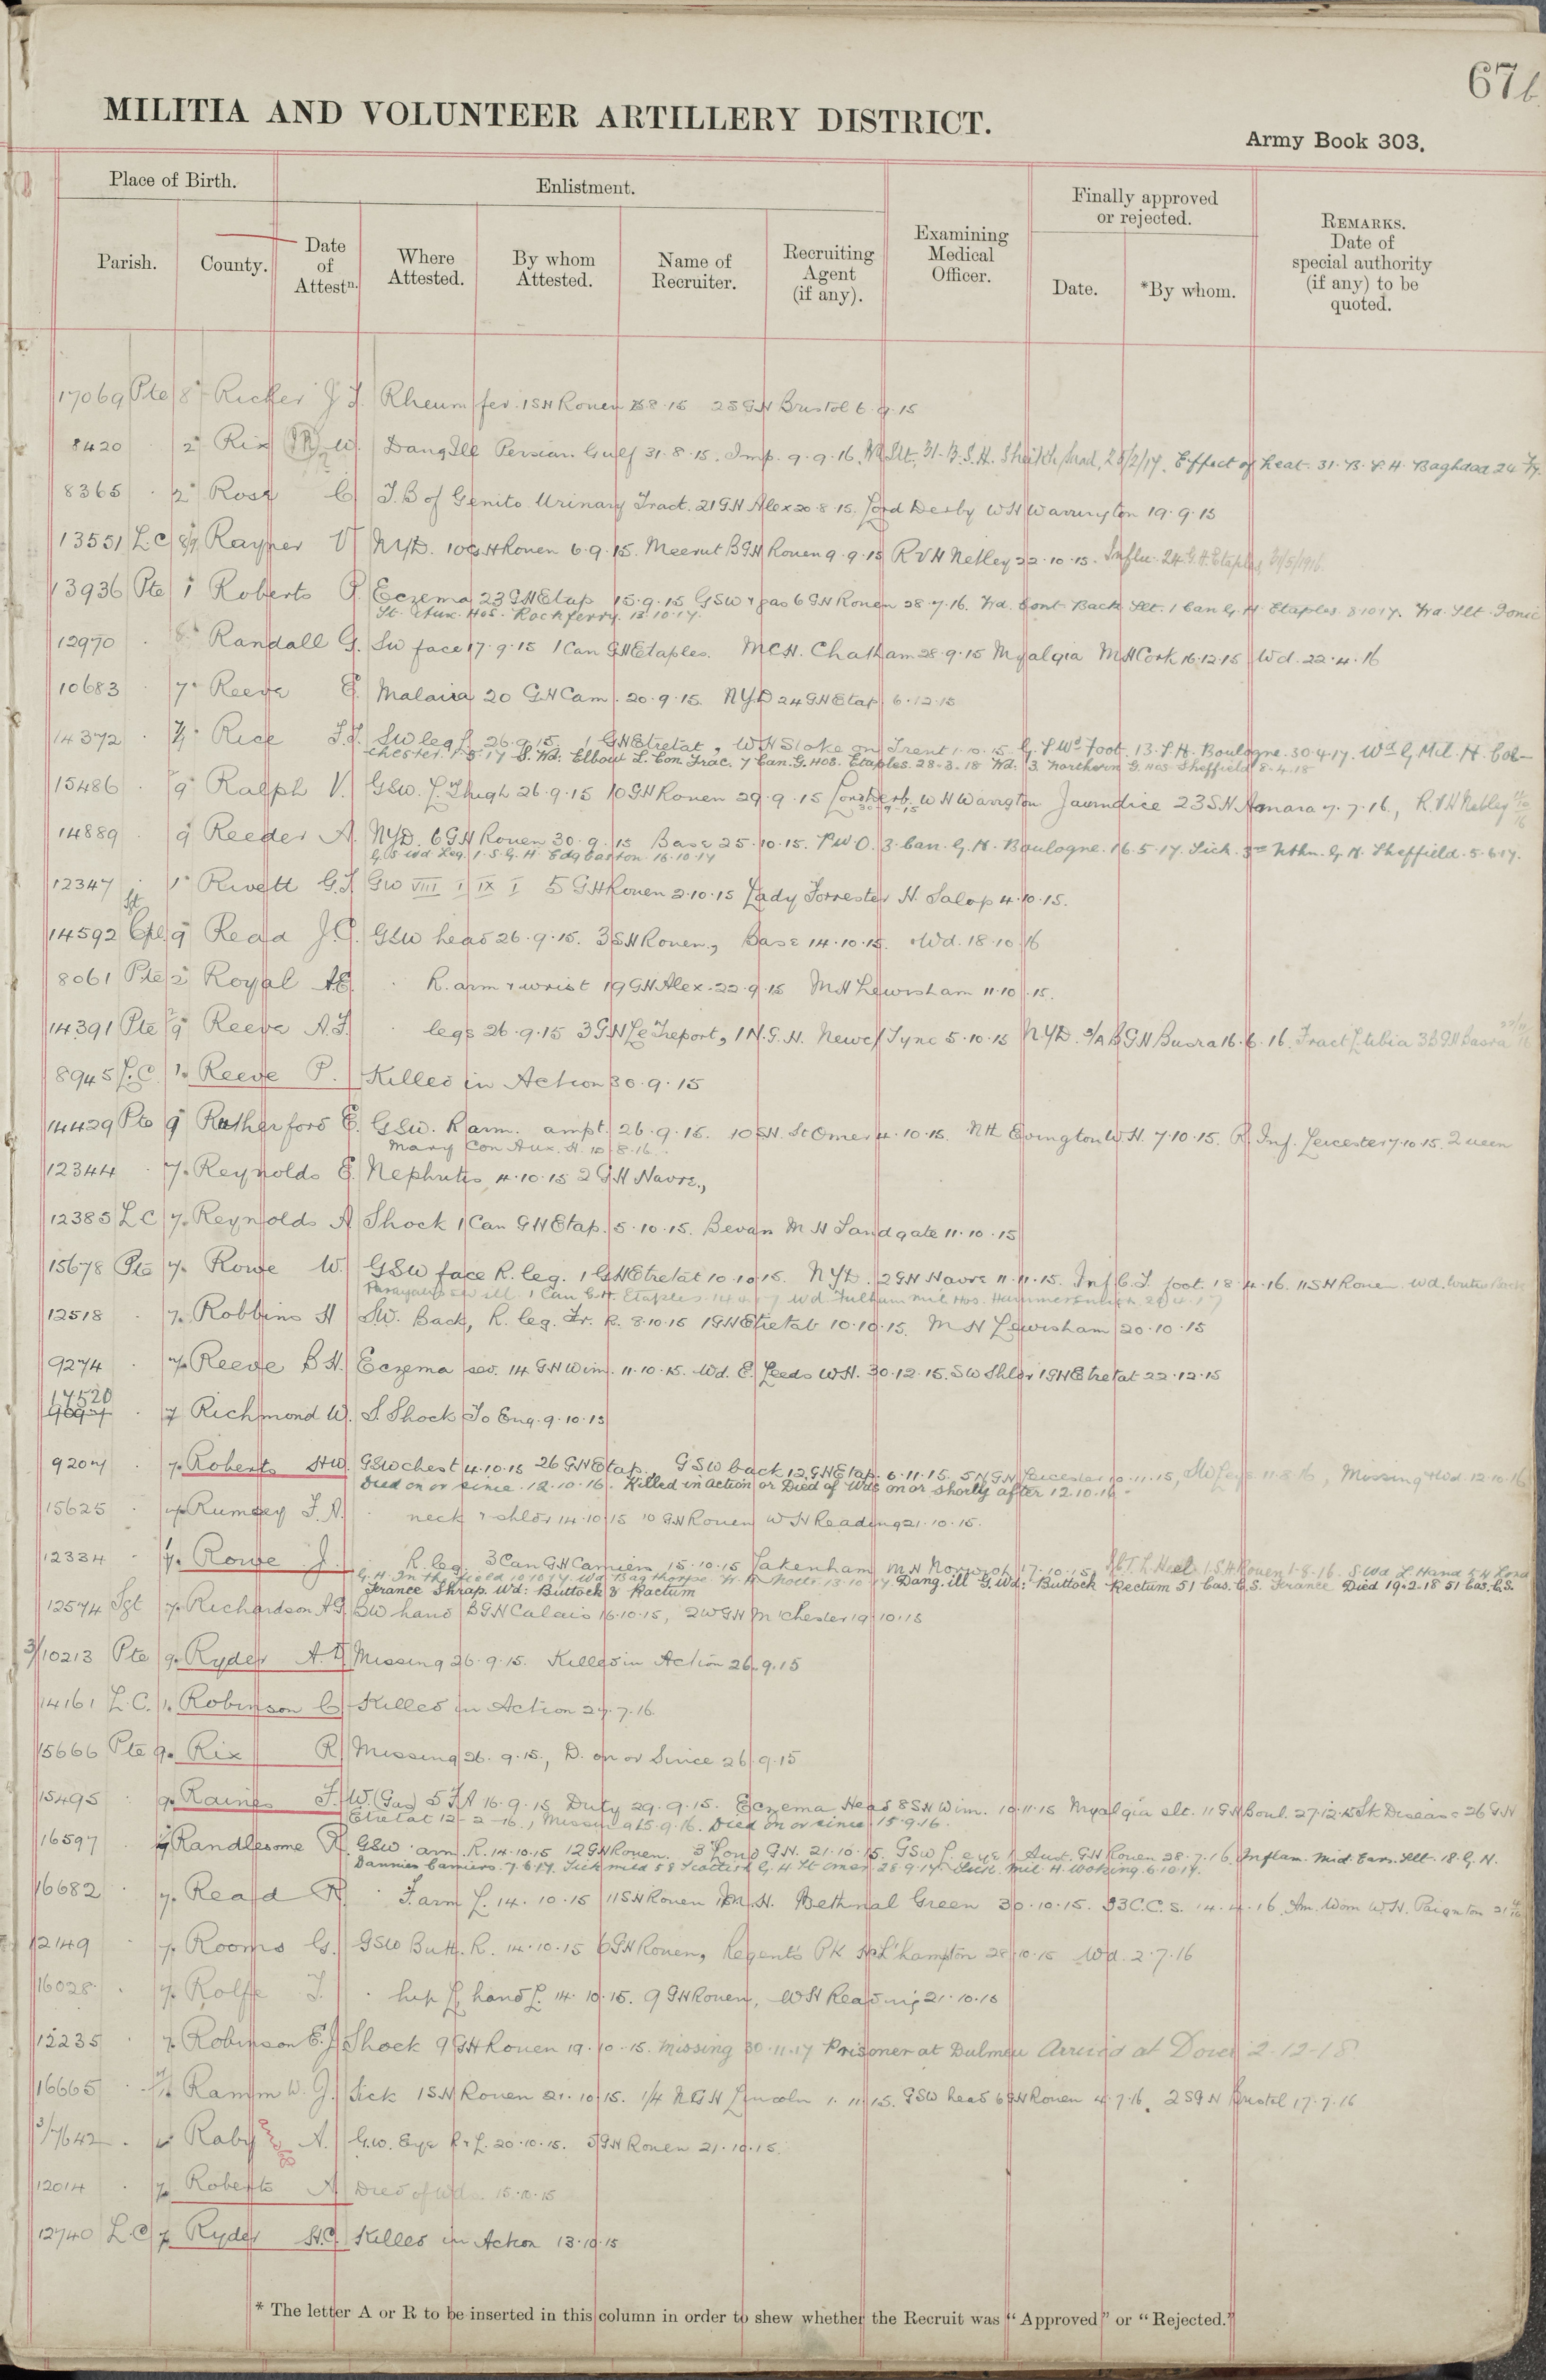 67b
MILITIA AND VOLUNTEER ARTILLERY DISTRICT.
Army Book 303.
Place of Birth.
Enlistment.
Finally approved
or rejected.
Parish.
County.
Date
of
Attestn.
Where
Attested.
By whom
Attested.
Name of
Recruiter.
Recruiting
Agent
(if any).
Examining
Medical
Officer.
Date.
*By whom.
REMARKS.
Date of
special authority
(if any) to be
quoted.
17069 Pte 8 Ricker J J. Rheum fev. 1SH Rouen 28.8.15 2SGH Bristol 6.9.15
8420 . 2 Rix W. Dang Ill Persian Gulf 31.8.15. Imp. 9.9.16. Slt. 31.B.S.H. Sheikh Saad, 25/2/17. Effect of heat. 31.B.S.H. Baghdad 24.
8365 . 2 Rose C T.B of Genito Urinary Tract. 21GH Alex 20.8.15. Lord Derby WH Warrington 19.9.15
13551 L.C 8/9 Rayner V NYD. 10GH Rouen 6.9.15. Meerut BGH Rouen 9.9.15 RVH Netley 22.10.15. Influ. 24.G.H. Etaples 31/5/1916.
13936 Pte 1 Roberts P. Eczema 23GH Etap 15.9.15 GSW & gas 6GH Rouen 28.7.16. Wd. Cont. Back Slt. 1 Can G.H. Etaples 8.10.17. Wd. Slt.
St. Aux. Hos. Rockferry. 13.10.17.
12970 . 8 Randall G. SW face 17.9.15 1 Can GH Etaples. MCH. Chatham 28.9.15 Myalgia MH Cork 16.12.15 Wd. 22.4.16
10683 . 7 Reeve E. Malaria 20 GH Cam. 20.9.15. NYD 24GH Etap. 6.12.15
14372 . 7/1 Rice J.J. SW leg L 26.9.15. 1 GH Etretat, WH Stoke on Trent 1.10.15. G.S Wd Foot. 13.S.H. Boulogne. 30.4.17. Wd G, Mil. H. Col-
chester. 1.5.17 S. Wd. Elbow L. Con. Frac. 7 Can. G. Hos. Etaples. 28.3.18 Wd. 3. Northern G. Hos Sheffield 8.4.18
15486 . 9 Ralph V. GSW. L Thigh 26.9.15 10GH Rouen 29.9.15 Lord Derb. WH Warington Jaundice 23SH Amara 7.7.16, RVH Netley
30.9.15
14889 . 9 Reeder A. NYD. 6GH Rouen 30.9.15 Base 25.10.15. P.U.O. 3. Can. G.H. Boulogne. 16.5.17. Sick. 3rd Nthn. G.H. Sheffield. 5.6.17.
G.S. Wd Leg. 1.S.G.H. Edgbaston. 16.10.17
12347 . 1 Rivett G.J. GW VIII I IX I 5GH Rouen 2.10.15 Lady Forrester H. Salop 4.10.15.
14592 Cpl 9 Read J.C. GSW head 26.9.15. 3SH Rouen., Base 14.10.15. Wd. 18.10.16
8061 Pte 2 Royal A.E. . R. arm & wrist 19GH Alex. 22.9.15 MH Lewisham 11.10.15.
14391 Pte 2/9 Reeve A.J. . legs 26.9.15 3GH Le Treport, 1N.G.H. Newc/Tyne 5.10.15 NYD. 3/A BGH Busra 16.6.16. Fract L tibia 3BGH Basra
8945 L.C. 1 Reeve P. Killed in Action 30.9.15
14429 Pte 9 Rutherford E. GSW. R arm. ampt. 26.9.15. 10SH. St Omer 4.10.15. Nth Evington W.H. 7.10.15. R. Inf. Leicester 7.10.15. Queen
Mary Con Aux. H. 10.8.16.
12344 . 7. Reynolds E. Nephritis, 4.10.15 2GH Havre.,
12385 L C 7. Reynolds A Shock 1 Can GH Etap. 5.10.15. Bevan MH Sandgate 11.10.15
15678 Pte 7. Rowe W. GSW face R. leg. 1GH Etretat 10.10.15. NYD. 2GH Havre 11.11.15. Inf C.T. foot. 18.4.16. 11SH Rouen. Wd. Back
Ill. 1 Can G.H. Etaples. Wd. Fulham Mil Hos. Hammersmith.
12518 . 7. Robbins H SW. Back, R. leg. Fr. R. 8.10.15 1GH Etretat 10.10.15. MH Lewisham 20.10.15
9274 . 7. Reeve B H. Eczema sev. 14 GH Wim. 11.10.15. Wd. E. Leeds WH. 30.12.15. SW Shldr 1GH Etretat 22.12.15
17520
. 7 Richmond W. S. Shock To Eng. 9.10.15
9207 . 7. Roberts H.W. GSW chest 4.10.15 26 GH Etap. GSW back 12GH Etap. 6.11.15. 5NGH Leicester 10.11.15, SW Leg 11.8.16, Missing & Wd. 12.10.16
Died on or since. 12.10.16. Killed in action or Died of Wds on or shortly after 12.10.16.
15625 . 7. Rumsey J.A. . neck & shldr 14.10.15 10GH Rouen WH Reading 21.10.15.
12334 . 7. Rowe J. . R. leg. 3 Can GH Camiers 15.10.15 Takenham MH Norwich 17.10.15. I.C.T. L Heel 1 S.H. Rouen 1.8.16. S. Wd L. Hand
G.H. In the field 10.10.17. Wd. Bagthorpe Notts. 13.10.17. Dang. ill G. Wd: Buttock Rectum 51 Cas. C.S. France Died 19.2.18 51 Cas. C.S.
France Shrap. Wd: Buttock & Rectum
12574 Sgt 7. Richardson A.G. BW hand BGH Calais 16.10.15, 2WGH M'chester 19.10.15
3/10213 Pte 9. Ryder A. D Missing 26.9.15. Killed in Action 26.9.15
14161 L.C. 1. Robinson C Killed in Action 27.7.16.
15666 Pte 9. Rix R Missing 26.9.15., D. on or Since 26.9.15
15495 . 9. Raines F. W. (Gas) 5FA 16.9.15 Duty 29.9.15. Eczema Head 8SH Wim. 10.11.15 Myalgia slt. 11GH Boul. 27.12.15 Sk Disease 26GH
Etretat 12-2-16., Missing 15.9.16. Died on or since 15.9.16.
16597 . Randlesome R. GSW arm. R. 14.10.15 12GH Rouen. 3 Lond G.H. 21.10.15. GSW L. eye 1 Aust. GH Rouen 28.7.16. Inflam. Mid. Ears. Slt. 18.G.H.
Dannies Camiers. 7.6.17. Sick mild 58 Scottish G.H. St Omer 28.9.17. Sick. Mil H. Woking. 6.10.17.
16682 . 7. Read R. . F. arm L. 14.10.15 11SH Rouen M.H. Bethnal Green 30.10.15. 33C.C.S. 14.4.16. Am. Wom W.H. Paignton
12149 . 7. Rooms G. GSW Butt. R. 14.10.15 6GH Rouen, Regents Pk L'hampton 28.10.15 Wd. 2.7.16
16028 . 7. Rolfe J. . hip L, hand L. 14.10.15. 9GH Rouen, WH Reading 21.10.15
12235 . 7. Robinson E.J. Shock 9GH Rouen 19.10.15. Missing 30.11.17 Prisoner at Dulmen Arrived at Dover 2.12.18
16665 . Ramm W. J. Sick 1SH Rouen 21.10.15. 1/4 NGH Lincoln 1.11.15. GSW head 6GH Rouen 4.7.16. 2SGN Bristol 17.7.16
3/7642 . Raby A. G.W. Eye R & L. 20.10.15. 5GH Rouen 21.10.15.
12014 . 7. Roberts A Died of Wds. 15.10.15
12740 L.C 7. Ryder H.C. Killed in Action 13.10.15
* The letter A or R to be inserted in this column in order to shew whether the Recruit was "Approved" or "Rejected."